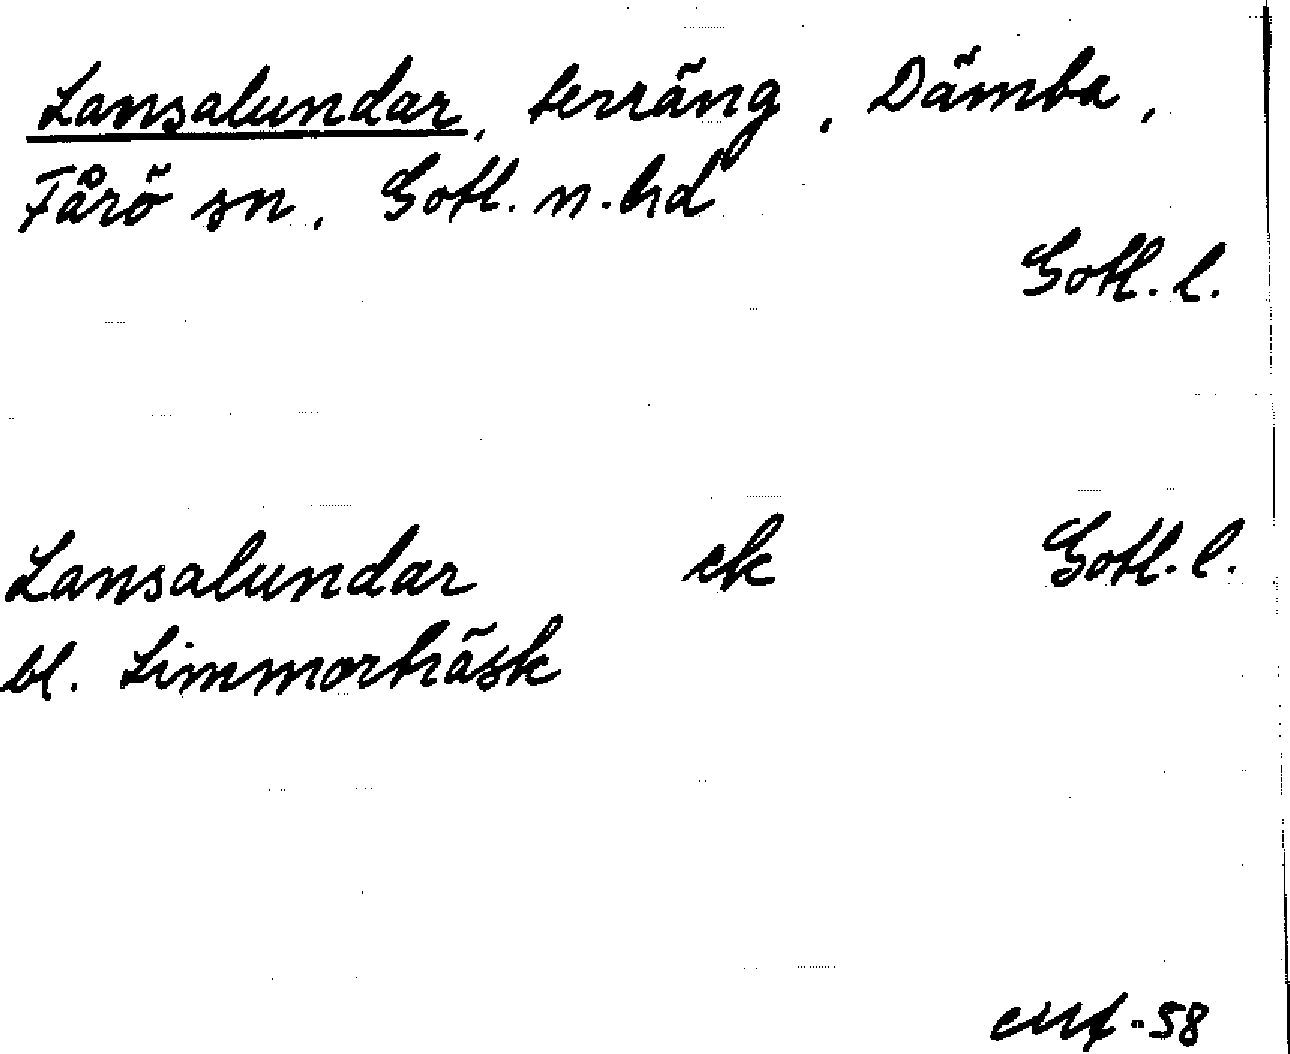 Lansalundar, terräng, Dämba,
Fårö sn, Gotl. n. hd
Gotl. l.
Lansalundar ek Gotl. l.
bl. Limmorträsk
-58